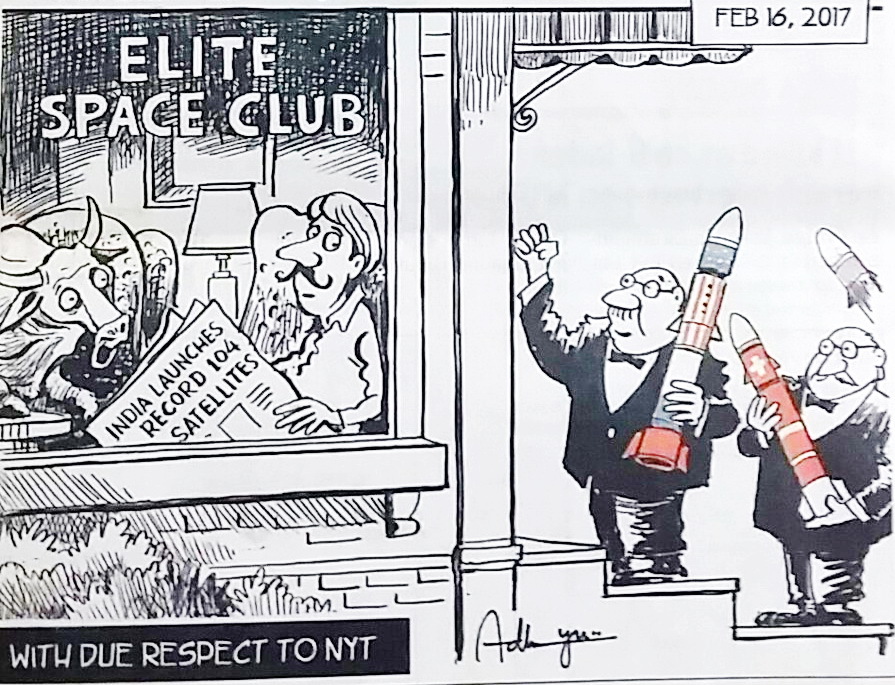 FEB 16, 2017
ELITE
SPACE CLUB
INDIA LAUNCHES
RECORD 104
SATELLITES
WITH DUE RESPECT TO NYT